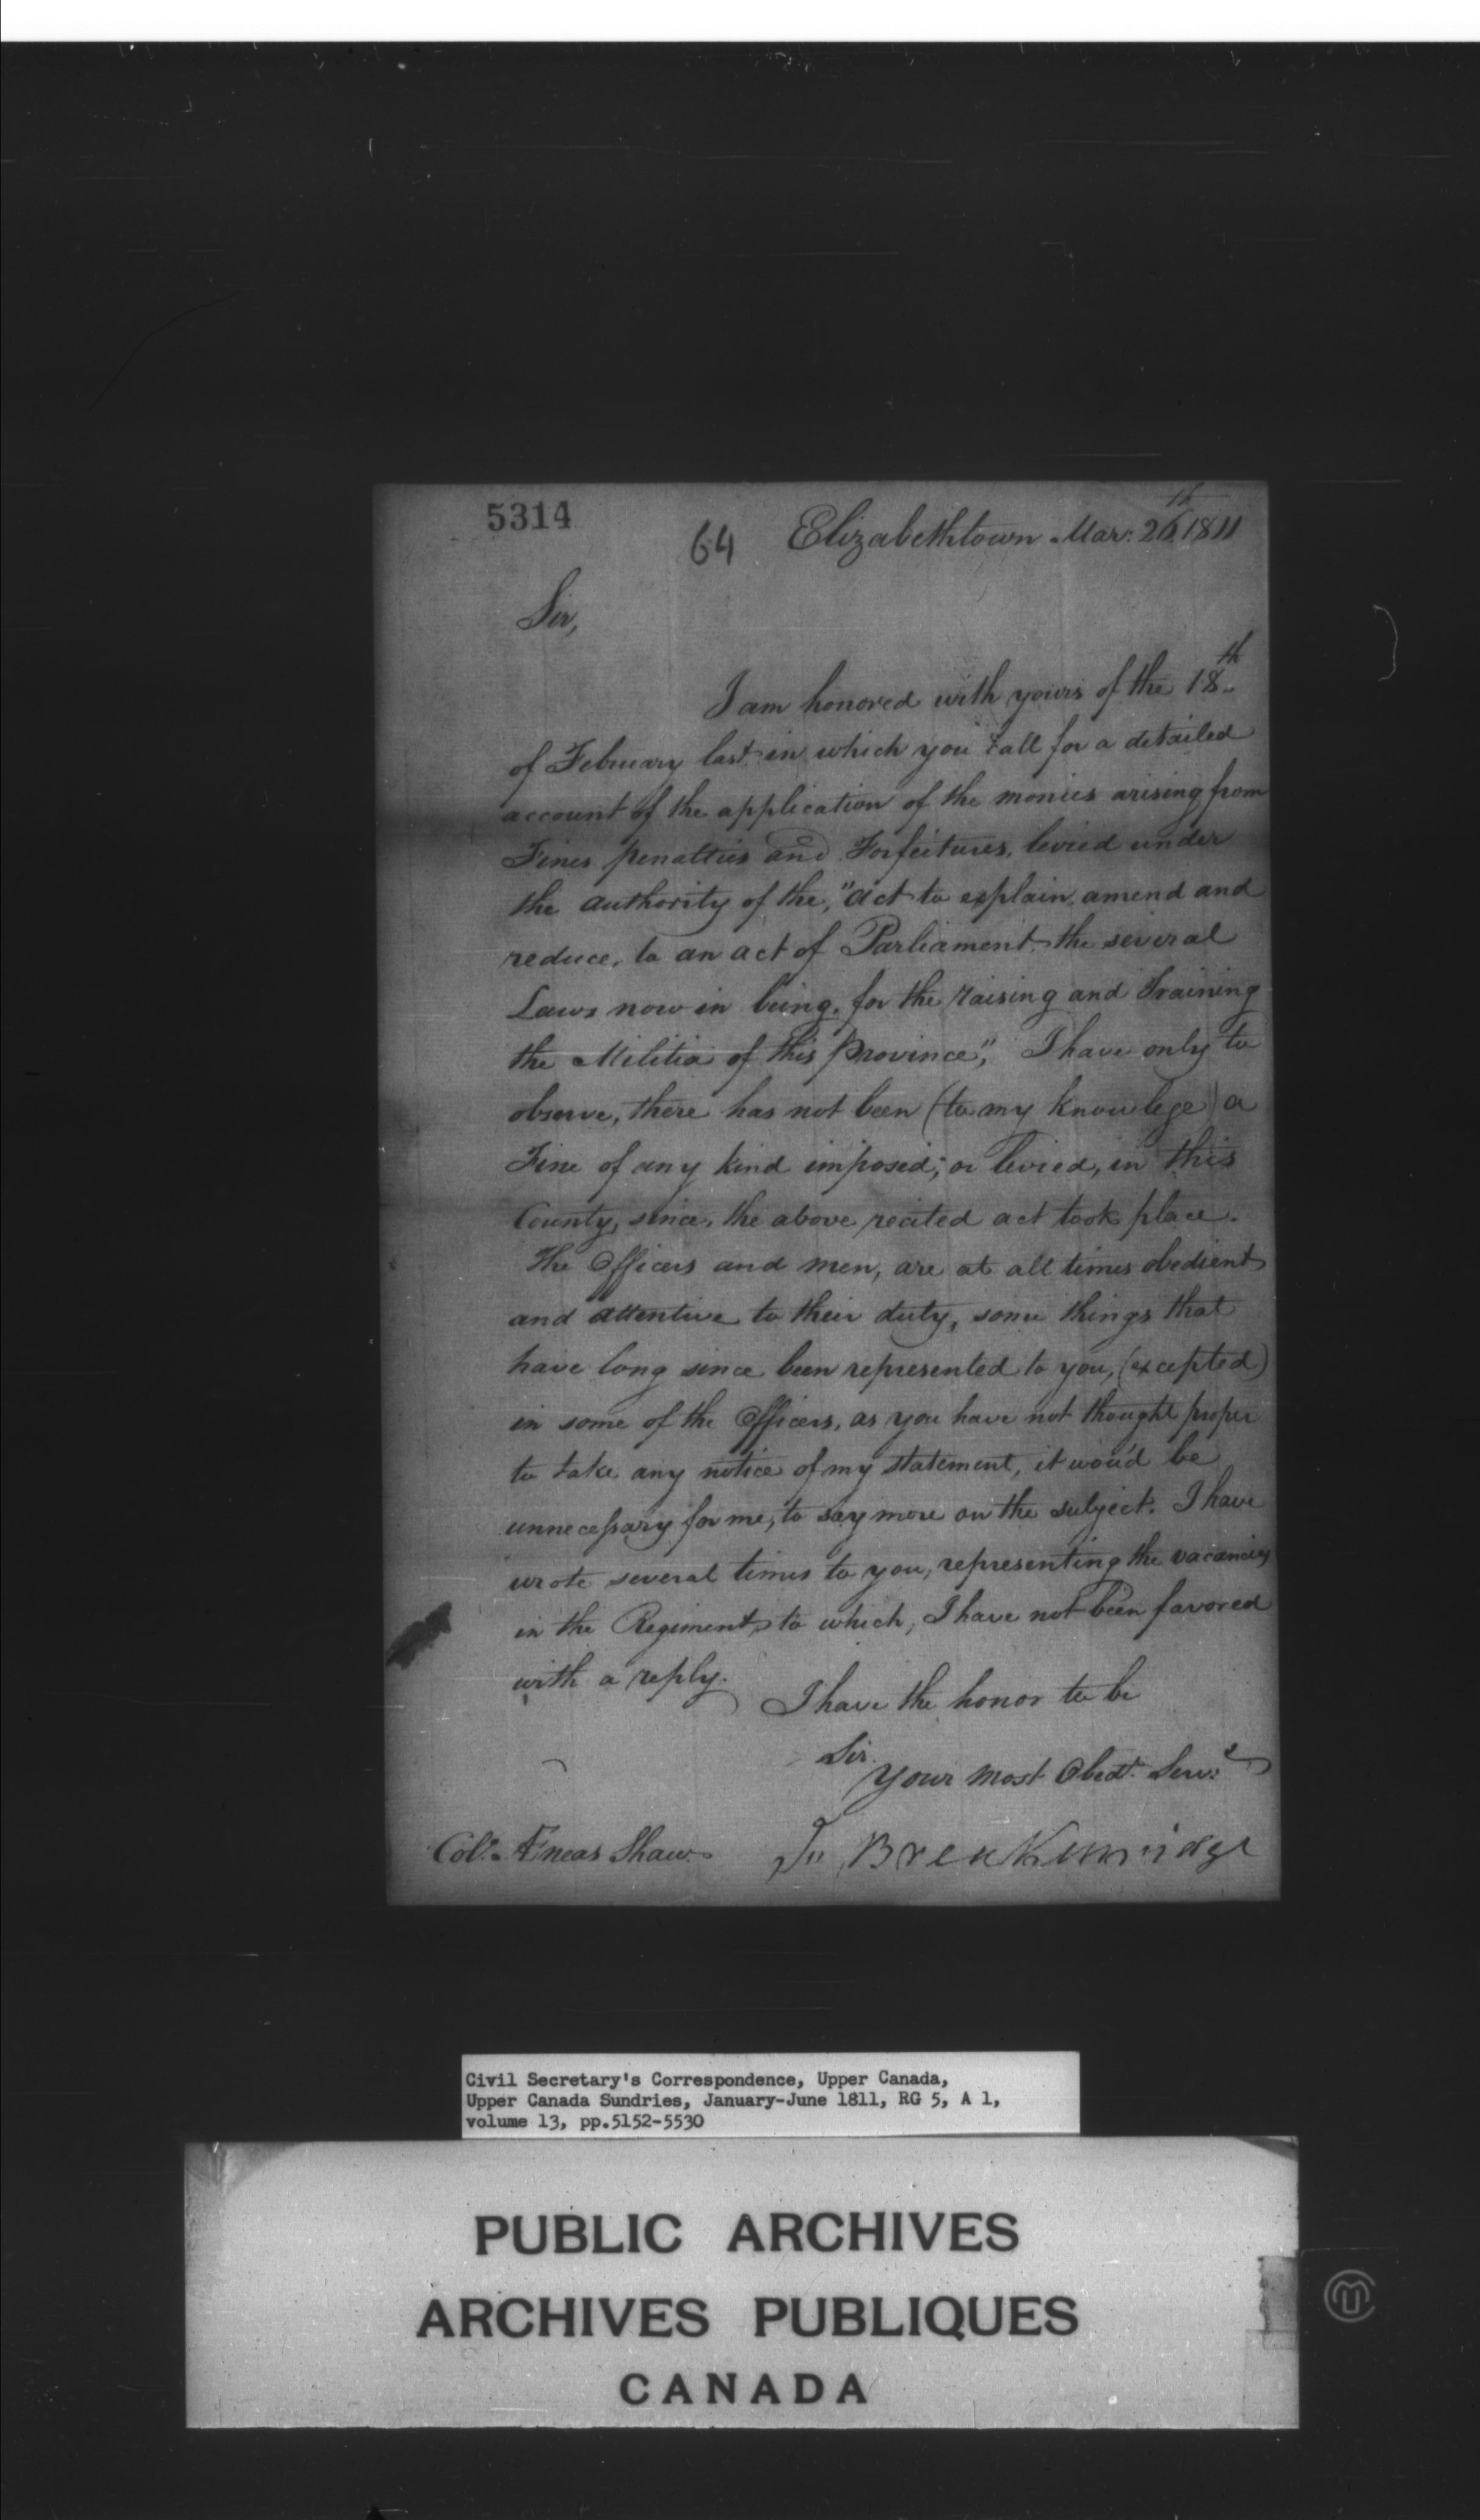 5314
64 Elizabethtown Mar: 26th 1811
Sir,
I am honored with yours of the 18th
of February last in which you call for a detailed
account of the application of the monies arising from
Fines penalties and Forfeitures, levied under
the authority of the, "act to explain, amend and
reduce, to an act of Parliament the several
Laws now in being, for the raising and Training
the Militia of this Province", I have only to
observe, there has not been (to my knowlege) a
Fine of any kind imposed; or levied, in this
County, since, the above recited act took place.
The Officers and men, are at all times obedient
and attentive to their duty, some things that
have long since been represented to you, (excepted)
in some of the Officers, as you have not thought proper
to take any notice of my statement, it wou'd be
unnecessary for me, to say more on the subject. I have
wrote several times to you, representing the vacancies
in the Regiment, to which, I have not been favored
with a reply.
I have the honor to be
Sir
Your most Obedt. Servt
Col. Æneas Shaw
Js Breakenridge
Civil Secretary's Correspondence, Upper Canada,
Upper Canada Sundries, January-June 1811, RG 5, A 1,
volume 13, pp.5152-5530
PUBLIC ARCHIVES
ARCHIVES PUBLIQUES
CANADA